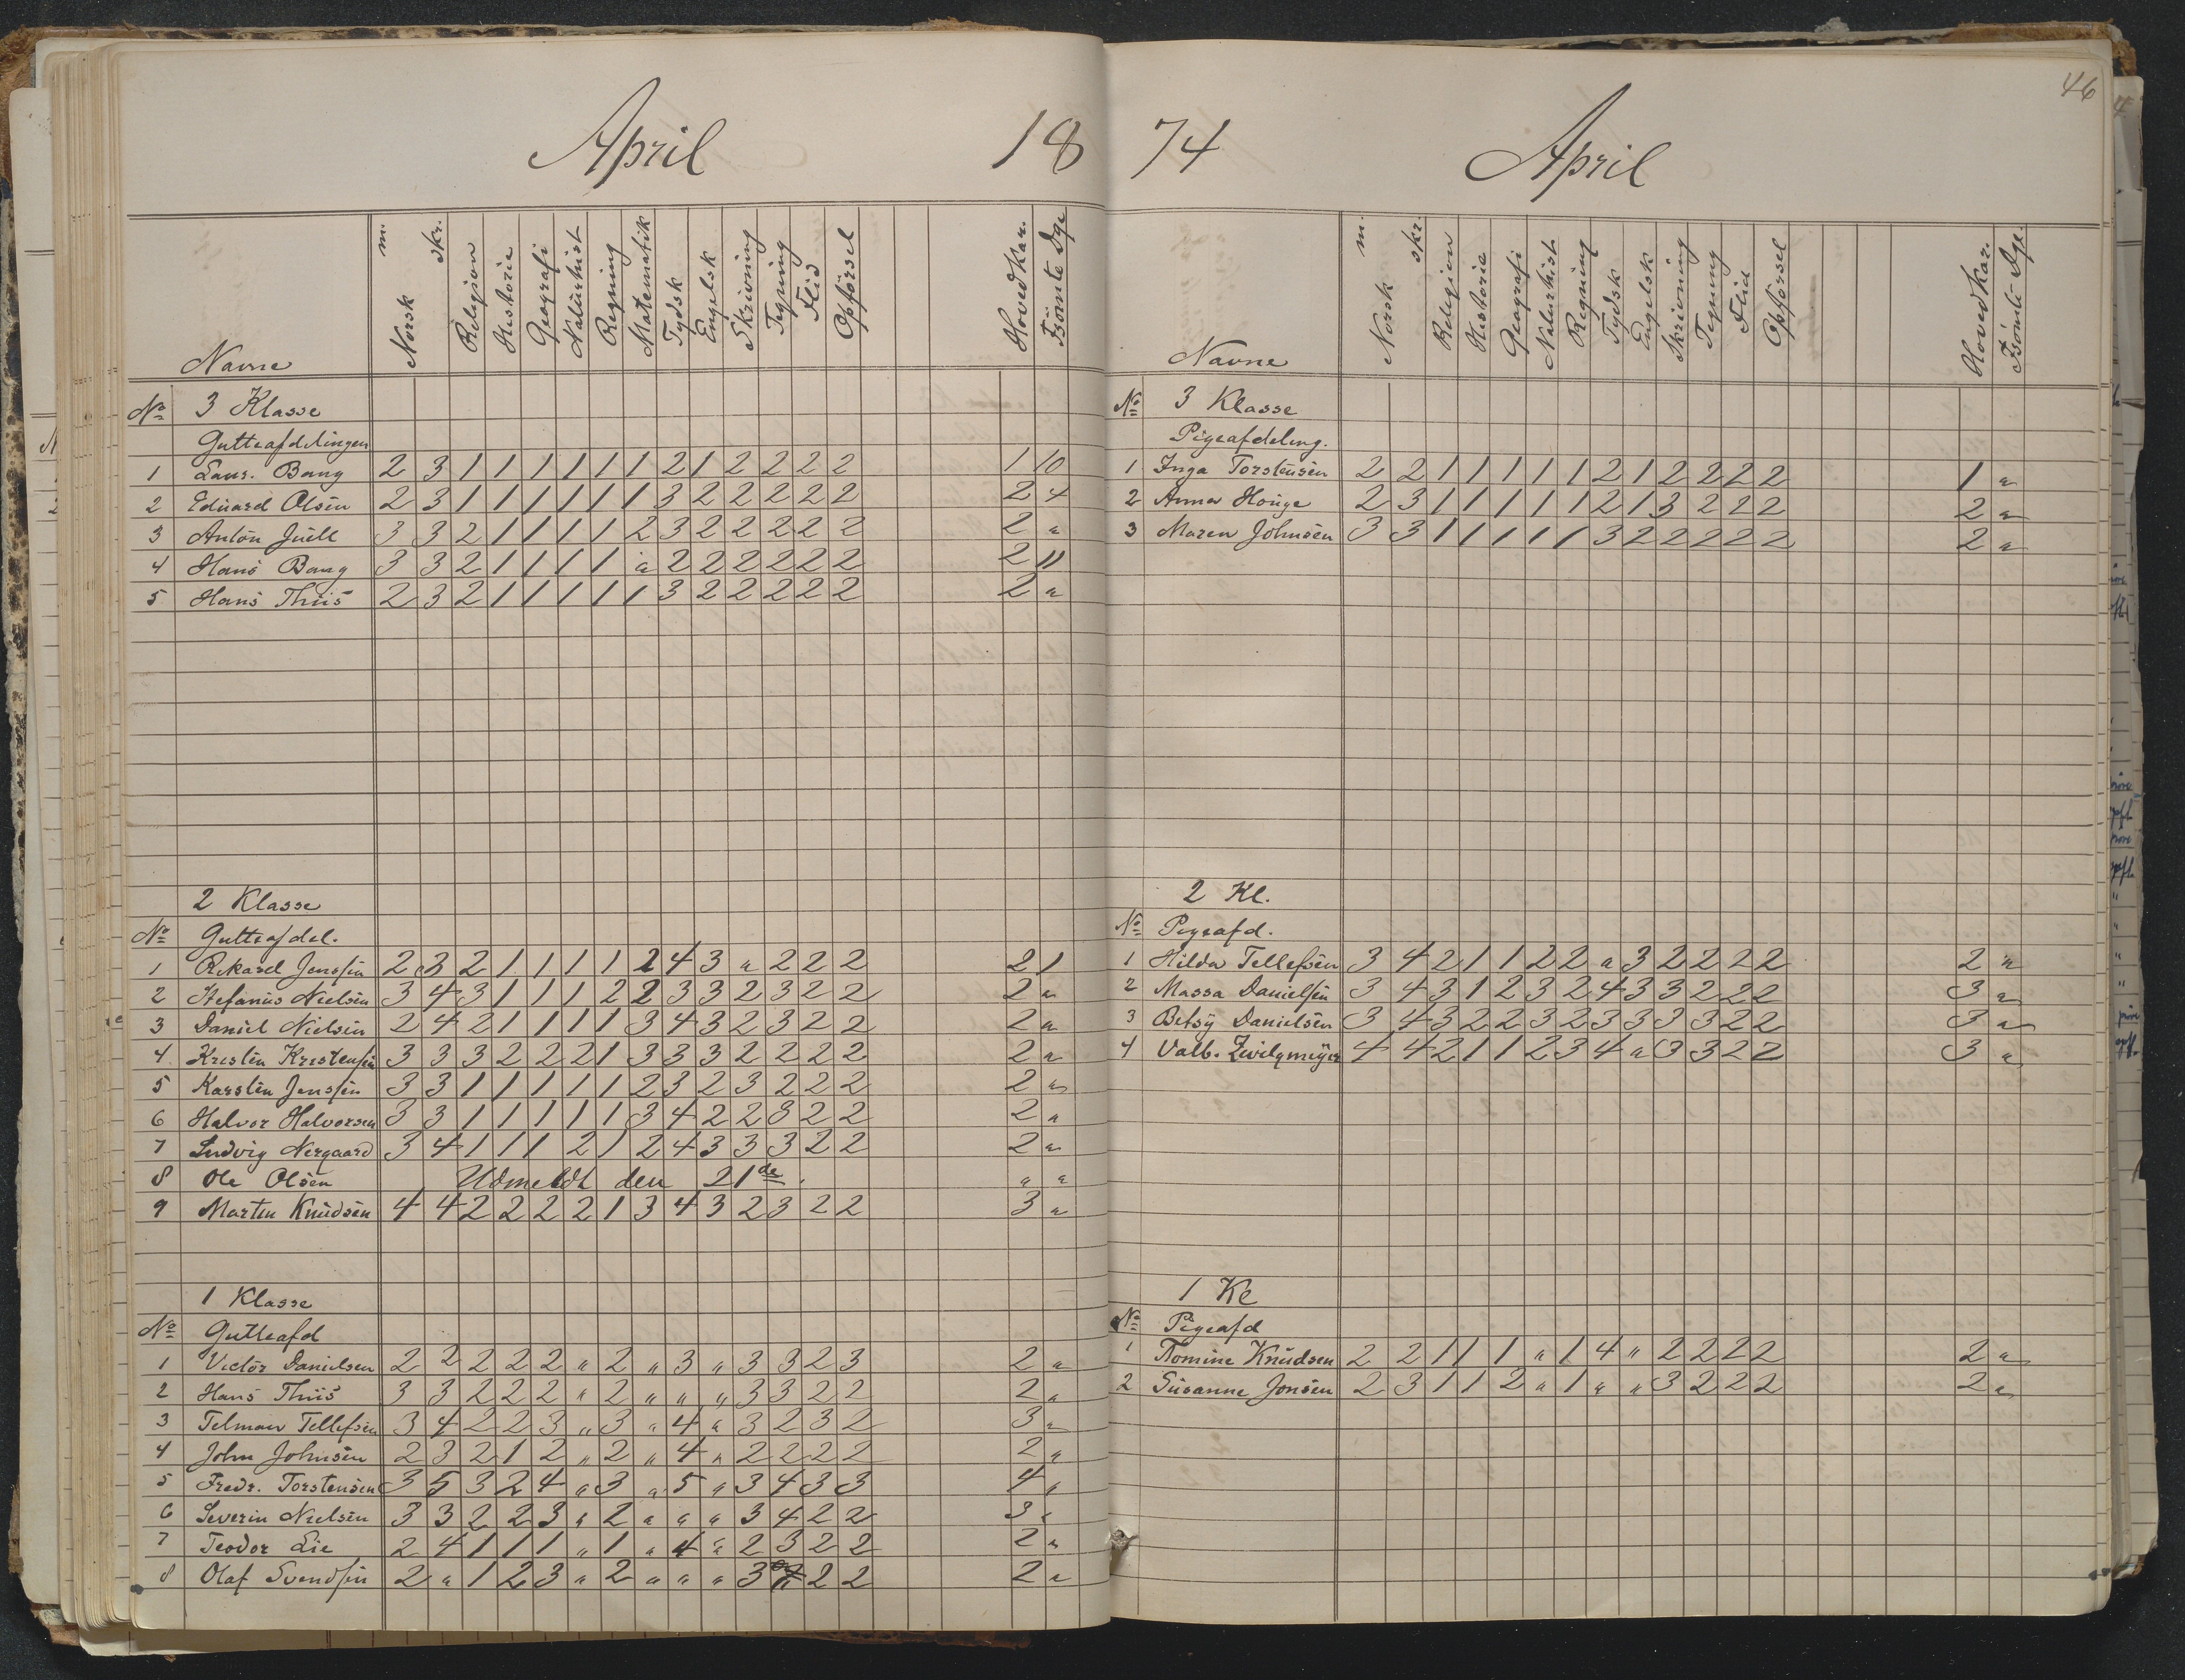 April 18
Navne Norsk m. skr. Religion Historie Geografi Naturhist Regning Matematik Tydsk Engelsk Skrivning Tegning Flid Opförsel Hoved Kar.
No 3 Klasse
Gutteafdelingen
1 Laur. Bang 2 3 1 1 1 1 1 1 2 1 2 2 2 2 1 10
2 Eduard Olsen 2 3 1 1 1 1 1 1 3 2 2 2 2 2 2 4
3 Anton Juell 3 3 2 1 1 1 1 2 3 2 2 2 2 2 2 "
4 Hans Bang 3 3 2 1 1 1 1 " 2 2 2 2 2 2 2 11
5 Hans Thiis 2 3 2 1 1 1 1 1 3 2 2 2 2 2 2 "
2 Klasse
No Gutteafdel.
1 Rikard Jenssen 2 3 2 1 1 1 1 2 4 3 " 2 2 2 2 1
2 Stefanus Nielsen 3 4 3 1 1 1 2 2 3 3 2 3 2 2 2 "
3 Daniel Nielsen 2 4 2 1 1 1 1 3 4 3 2 3 2 2 2 "
4 Kristen Kristensen 3 3 3 2 2 2 1 3 3 3 2 2 2 2 2 "
5 Karsten Jenssen 3 3 1 1 1 1 1 2 3 2 3 2 2 2 2 "
6 Halvor Halvorsen 3 3 1 1 1 1 1 3 4 2 2 3 2 2 2 "
7 Ludvig Nergaard 3 4 1 1 1 2 1 2 4 3 3 3 2 2 2 "
8 Ole Olsen Udmeldt den 21de. " "
9 Martin Knudsen 4 4 2 2 2 2 1 3 4 3 2 3 2 2 3 "
1 Klasse
No Gutteafd
1 Victor Danielsen 2 2 2 2 2 " 2 " 3 " 3 3 2 3 2 "
2 Hans Thiis 3 3 2 2 2 " 2 " " " 3 3 2 2 2 "
3 Telman Tellefsen 3 4 2 2 3 " 3 " 4 " 3 2 3 2 3 "
4 John Johnsen 2 3 2 1 2 " 2 " 4 " 2 2 2 2 2 "
5 Fredr. Torstensen 3 5 3 2 4 " 3 " 5 " 3 4 3 3 4 "
6 Severin Nielsen 3 3 2 2 3 " 2 " " " 3 4 2 2 3 "
7 Teodor Lie 2 4 1 1 1 " 1 " 4 " 2 3 2 2 2 "
8 Olaf Svendsen 2 " 1 2 3 " 2 " " " 3 2 2 2 "
46
74 April
Navne Norsk m. skr. Religion Historie Geografi Naturhist Regning Tydsk Engelsk Skrivning Tegning Flid Opförsel Hoved Kar.
No 3 Klasse
Pigeafdeling.
1 Inga Torstensen 2 2 1 1 1 1 1 2 1 2 2 2 2 1 "
2 Anna Houge 2 3 1 1 1 1 1 2 1 3 2 2 2 2 "
3 Maren Johnsen 3 3 1 1 1 1 1 3 2 2 2 2 2 2 "
2 Kl.
No Pigeafd.
1 Hilda Tellefsen 3 4 2 1 1 2 2 " 3 2 2 2 2 2 "
2 Massa Danielsen 3 4 3 1 2 3 2 4 3 3 2 2 2 3 "
3 Betsy Danielsen 3 4 3 2 2 3 2 3 3 3 3 2 2 3 "
4 Valb. Zwilgmeyer 4 4 2 1 1 2 3 4 " 3 3 2 2 3 "
1 Kl
No Pigeafd
1 Tomine Knudsen 2 2 1 1 1 " 1 4 " 2 2 2 2 2 "
2 Susanne Jonsen 2 3 1 1 2 " 1 " " 3 2 2 2 2 "